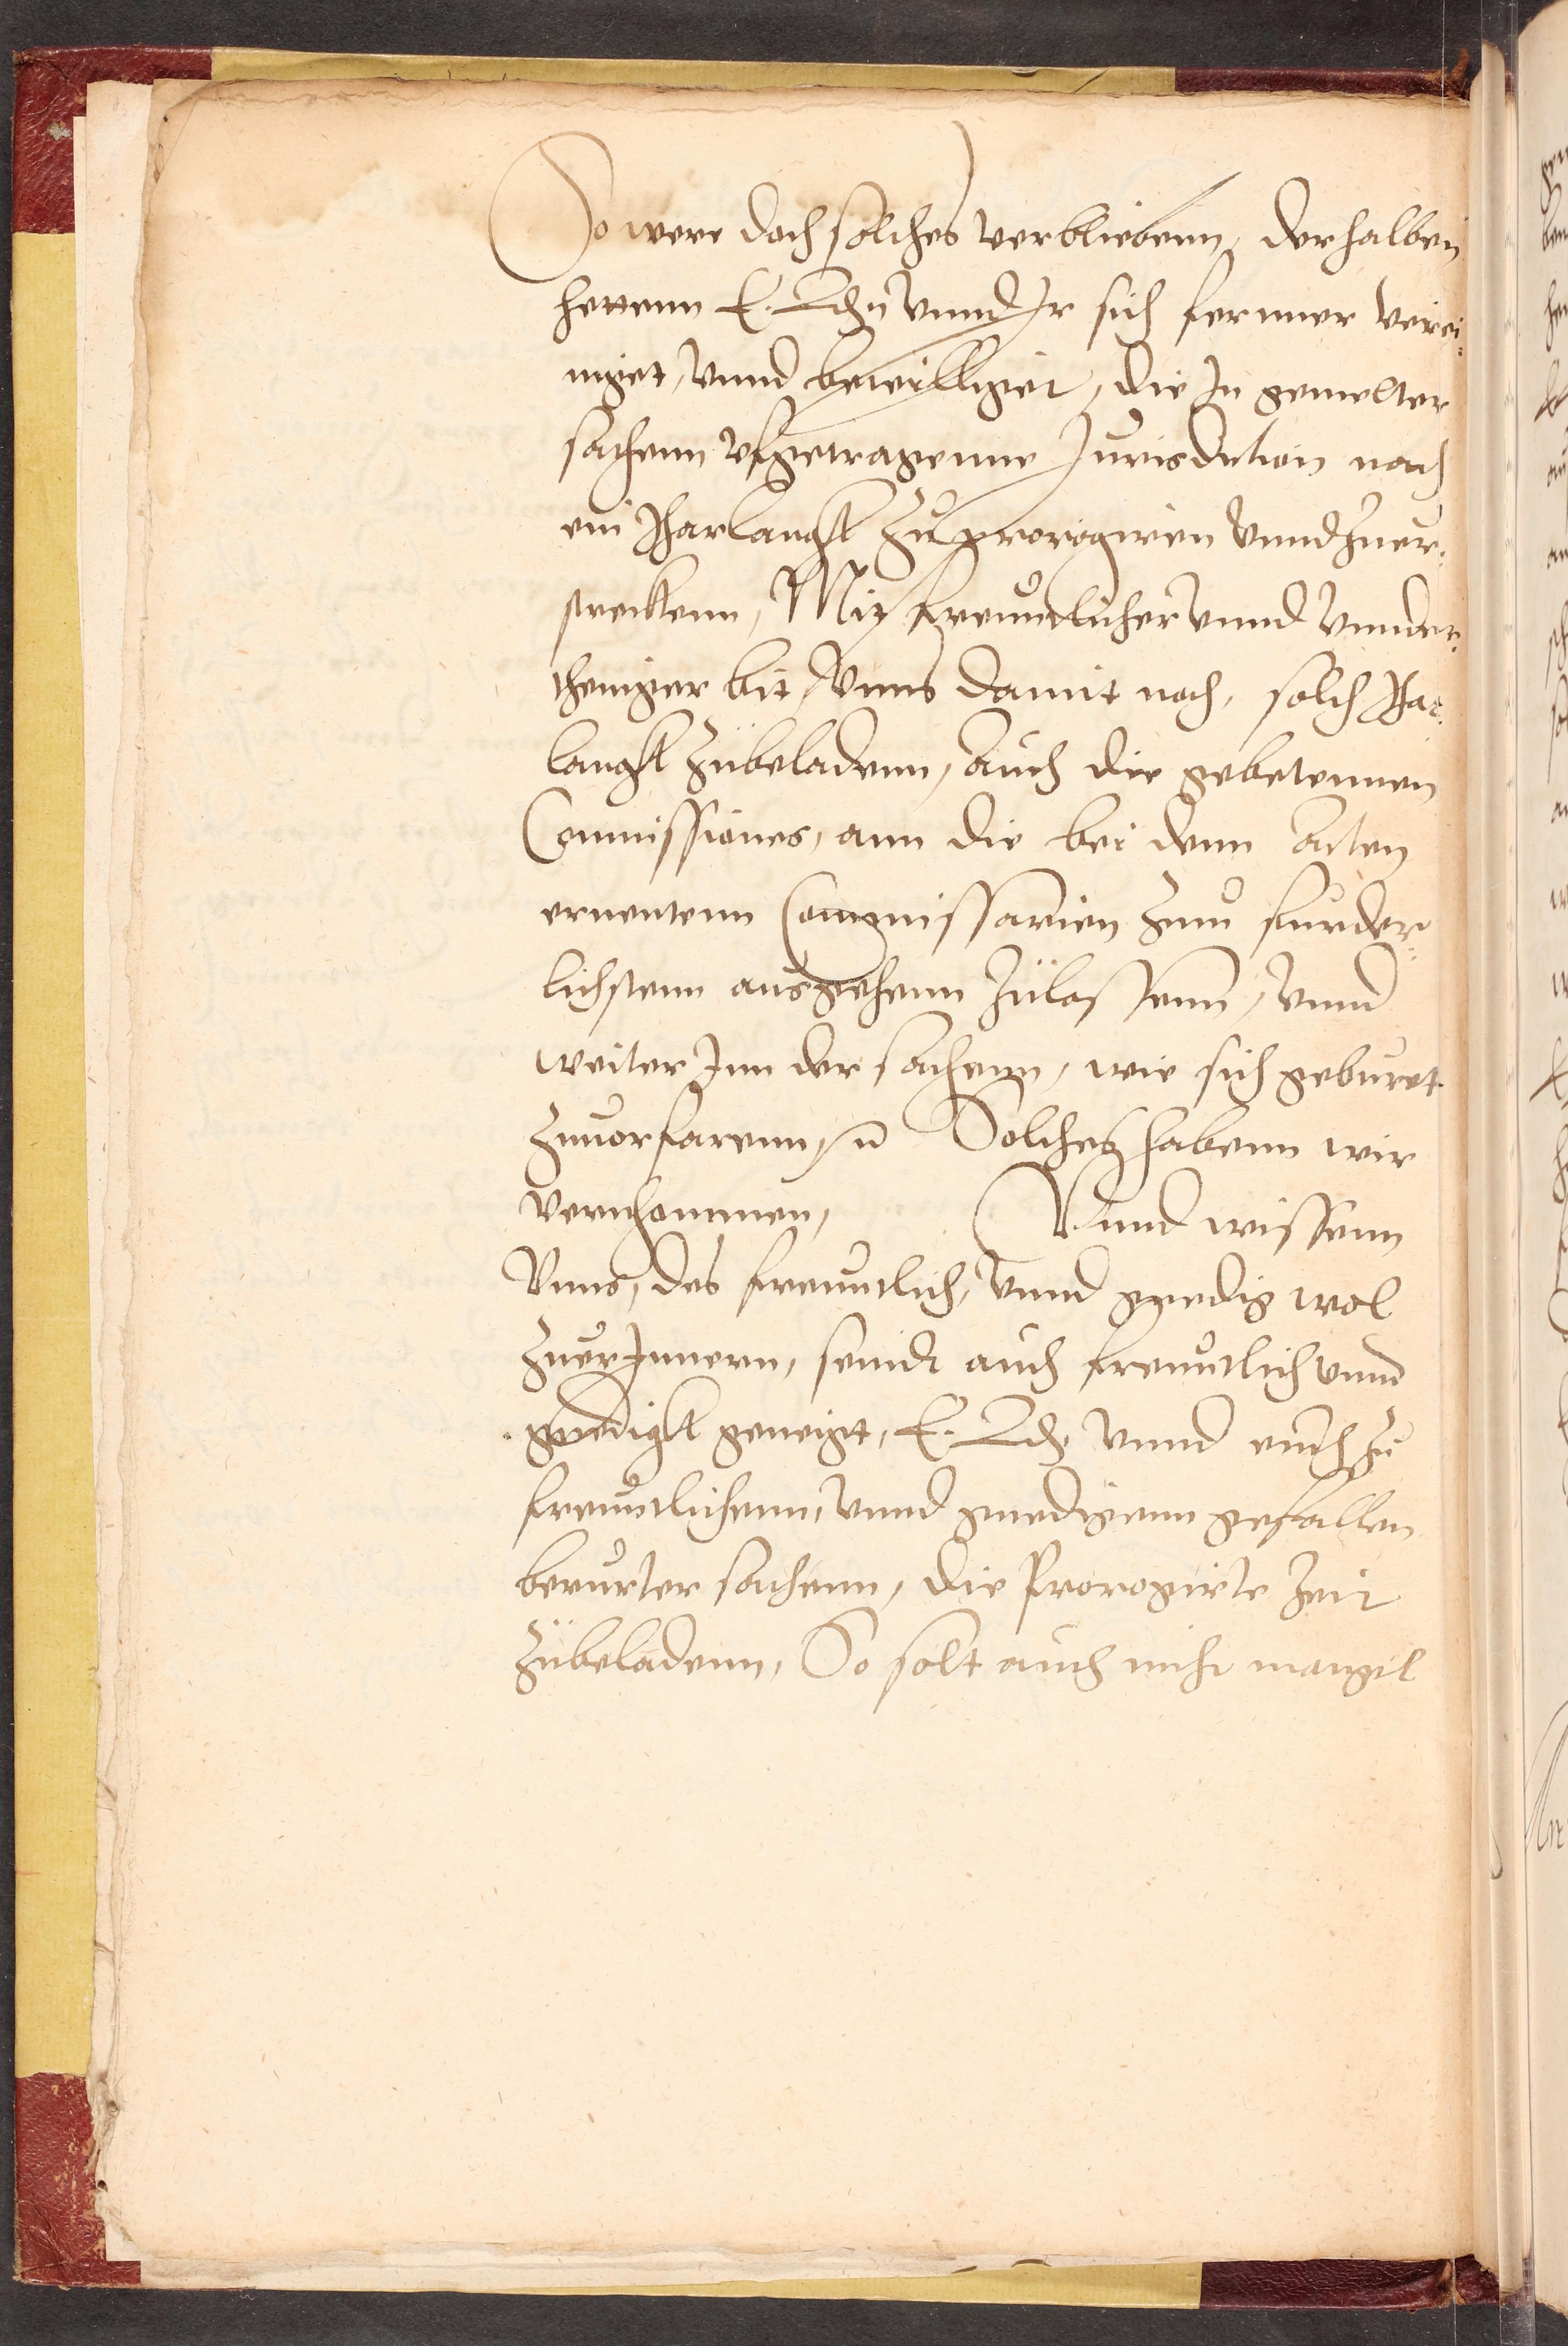 So were doch solches verbliebenn, derhalben
hettenn E. Ld. vnnd Ir sich fernner verei-
niget, vnnd bewilliget, die In gemelter
sachenn vfgetragenne Jurisdiction noch
ein Iharlangk zu prorogiren vnnd zuer-
streckenn, Mit freuntlicher vnnd vnnder-
theniger bit, vnns damit noch, solch Ihar
langk zubeladenn, auch die gebetennen
Commissiones, ann die bei denn Acten
ernentenn Commissarien zum furder-
lichstenn ausgehenn zulassenn, vnnd
weiter Inn der sachenn, wie sich geburet
zuuorfarenn, Solches habenn wir
vernhommen, Vnnd wissenn
vnns, des freuntlich, vnnd gnedig wol
zuerInnern, seindt auch freuntlich vnnd
gnedigk geneigt, E. Ld. vnnd euch zu
freuntlichenn, vnnd gnedigenn gefallen
berurter sachenn, die Prorogirte Zeit
zubeladenn, So solt auch nicht mangel